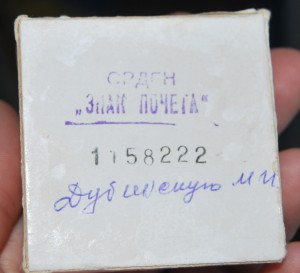 ОРДЕН
„ЗНАК ПОЧЕТА“
1158222
М И